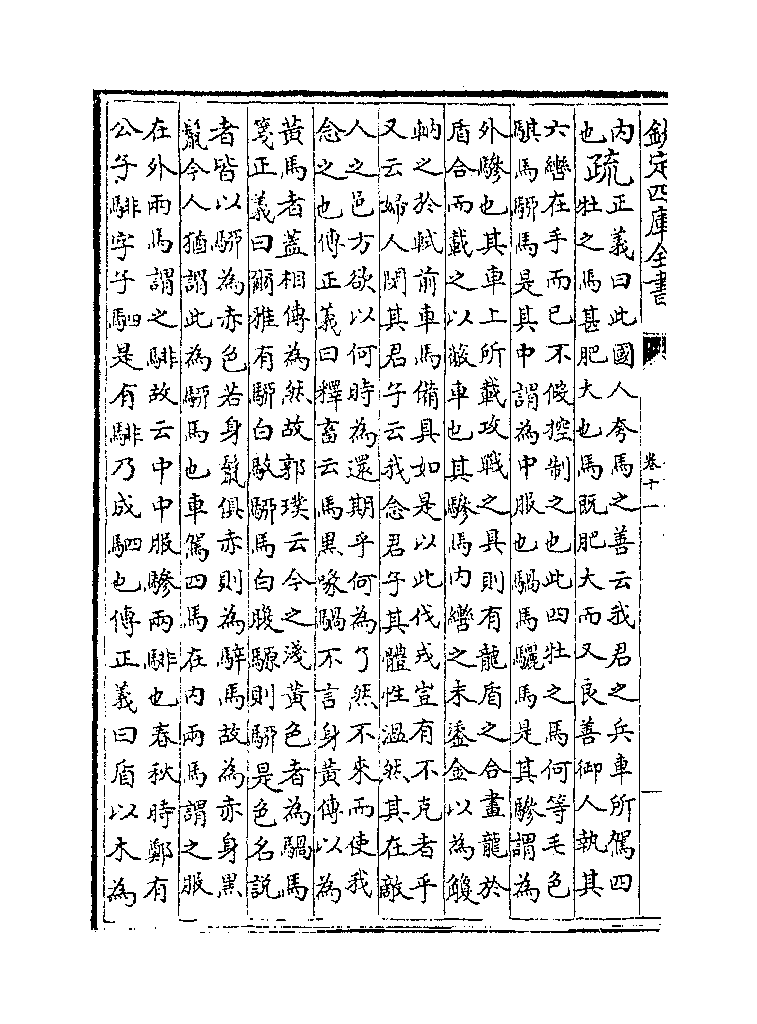 欽定四庫全書
卷十一
内
也
疏
正義曰此國人夸馬之善云我君之兵車所駕四
牡之馬甚肥大也馬既肥大而又良善御人執其
六轡在手而已不假控制之也此四牡之馬何等毛色
騏馬騮馬是其中謂為中服也騧馬驪馬是其驂謂為
外驂也其車上所載攻戰之具則有龍盾之合畫龍於
盾合而載之以蔽車也其驂馬内轡之末鋈金以為觼
軜之於軾前車馬備具如是以此伐戎豈有不克者乎
又云婦人閔其君子云我念君子其體性温然其在敵
人之邑方欲以何時為還期乎何為了然不來而使我
念之也傳正義曰釋畜云馬黒喙騧不言身黄傳以為
黄馬者蓋相傳為然故郭璞云今之淺黄色者為騧馬
箋正義曰爾雅有騮白駁騮馬白腹騵則騮是色名説
者皆以騮為赤色若身鬛俱赤則為騂馬故為赤身黒
鬛今人猶謂此為騮馬也車駕四馬在内兩馬謂之服
在外兩馬謂之騑故云中中服驂兩騑也春秋時鄭有
公子騑字子駟是有騑乃成駟也傳正義曰盾以木為